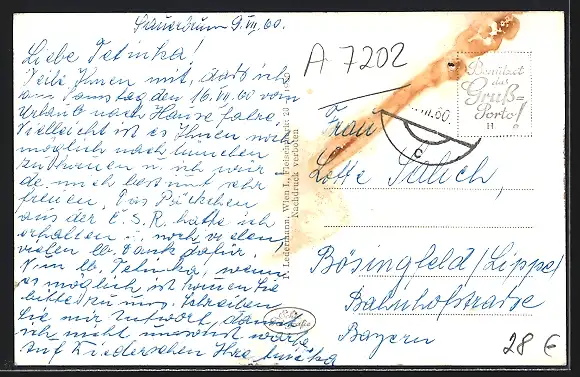 Sauerbrunn 9.VII.60.
Liebe Tetinka!
Teile Ihnen mit, dass ich
am Samstag den 16.VII.60 vom
Urlaub nach Hause fahre.
Vielleicht ist es Ihnen noch
möglich nach
zu kommen u. ich würde
mich bestimmt sehr
freuen. Das Päckchen
aus der Č.S.R. hatte ich
erhalten noch vielen
vielen lb. Dank dafür.
Nun lb. Tetinka, wenn
es möglich ist kommen Sie
bitte zu uns. Schreiben
Sie mir Antwort, damit
ich nicht umsonst warte
Auf Wiedersehen Ihre
P. Ledermann, Wien I., Fleischmarkt 20
Nachdruck verboten
A 7202
Benützet
die
Gruß-
Porto!
60
c
Frau
Lotte
Bösingfeld/Lippe/
Bahnhofstrasse
Bayern
28 €